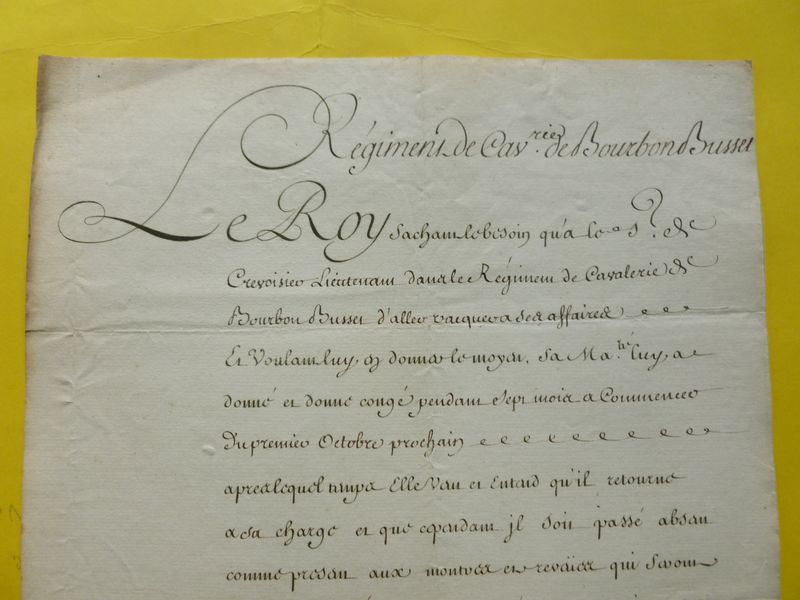 Régiment de Cav.rie de Bourbon Busset
Le Roy sachant le besoin qu'a le S.r de
Crevoisier Lieutenant dans le Régiment de Cavalerie de
Bourbon Busset d'aller vacquer a ses affaires
Et Voulant luy en donner le moyen, Sa Ma.té luy a
donné et donne congé pendant sept mois a Commencer
Du premier Octobre prochain
apres lequel temps Elle Veut et Entend qu'il retourne
a sa charge et que cependant jl soit passé absent
comme present aux montres et reveües qui seront